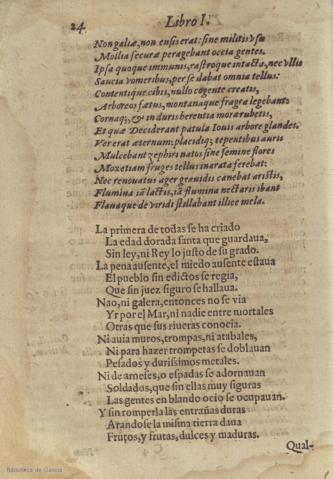 24 Libro I.
Non galiæ, non ensis erat: sine militis vsu
Mollia securæ peragebant occia gentes.
Ipsa quoque immunis, rastroque intacta, nec vllis
Saucia vomeribus, per se dabat omnia tellus:
Contentique cibis, nullo cogente creatis,
Arboreos fætus, montanaque fragra legebant:
Cornaq;, & in duris herentia mora rubetis,
Et quæ Deciderant patula Iouis arbore glandes.
Ver erat æternum: placidiq; tepentibus auris
Mulcebant zephiri natos sine semine flores
Mox etiam fruges tellus inarata ferebat:
Nec renouatus ager grauidis canebat aristis,
Flumina iã lactis, iã flumina nectaris ibant
Flauaque de viridi stillabant illice mela.
La primera de todas se ha criado
La edad dorada santa que guardaua,
Sin ley, ni Rey lo justo de su grado.
La pena ausente, el miedo ausente estaua
El pueblo sin edictos se regia,
Que sin juez siguro se hallaua.
Nao, ni galera, entonces no se via
Yr por el Mar, ni nadie entre mortales
Otras que sus riueras conocia.
Ni auia muros, trompas, ni atabales,
Ni para hazer trompetas se doblauan
Pesados y durissimos metales.
Ni de arneses, o espadas se adornauan
Soldados, que sin ellas muy siguras
Las gentes en blando ocio se ocupauan.
Y sin romperla las entrañas duras
Arandose la misma tierra daua
Frutos, y frutas, dulces y maduras.
Qual-
Biblioteca de Galicia